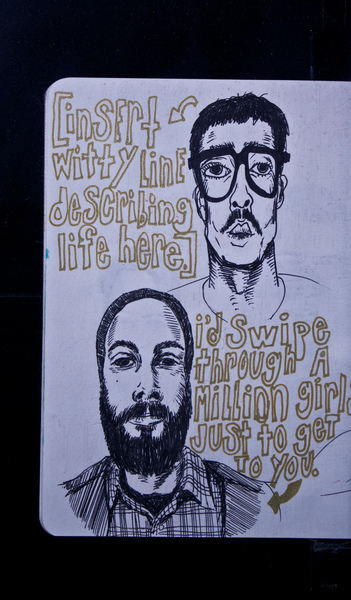 [insert
witty line
describing
life here]
i'd swipe
through a
million girls
just to get
to you.